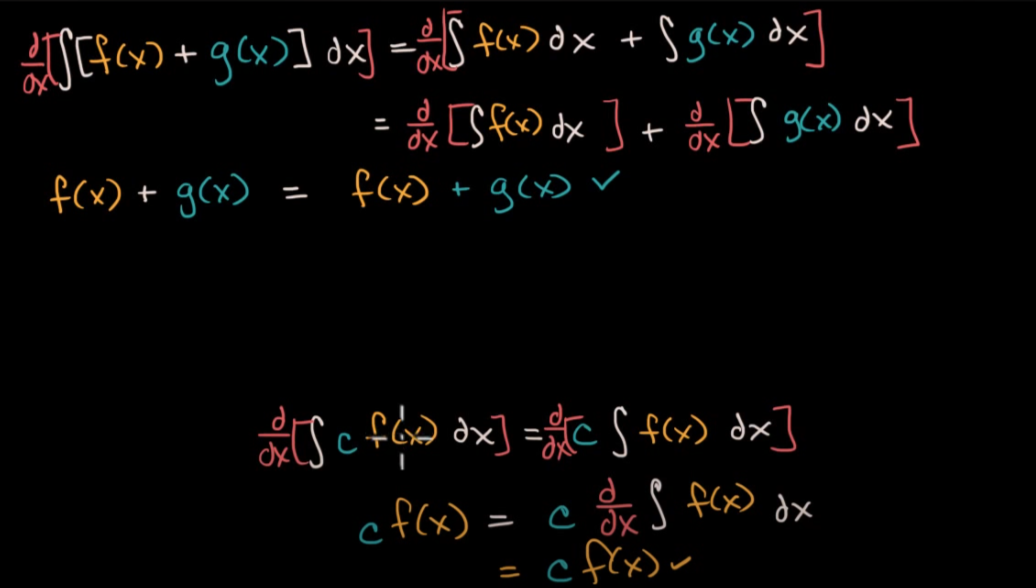 d/dx[∫[f(x) + g(x)] dx] = d/dx[∫ f(x) dx + ∫ g(x) dx]
= d/dx [∫f(x) dx] + d/dx [∫ g(x) dx]
f(x) + g(x) = f(x) + g(x) ✓
d/dx[∫ c f(x) dx] = d/dx[c ∫ f(x) dx]
c f(x) = c d/dx ∫ f(x) dx
= c f(x) ✓